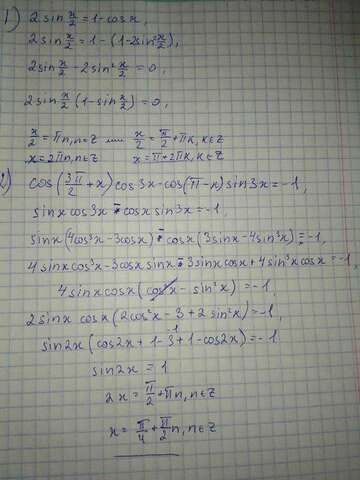 1) 2 sin x/2 = 1 - cos x,
2 sin x/2 = 1 - (1 - 2 sin² x/2),
2 sin x/2 - 2 sin² x/2 = 0,
2 sin x/2 (1 - sin x/2) = 0,
x/2 = πn, n∈Z или x/2 = π/2 + πk, k∈Z
x = 2πn, n∈Z x = π + 2πk, k∈Z
2) cos(3π/2 + x) cos 3x - cos(π - x) sin 3x = -1,
sin x cos 3x - cos x sin 3x = -1,
sin x (4cos³x - 3cos x) - cos x (3 sin x - 4 sin³x) = -1,
4 sin x cos³x - 3 cos x sin x - 3 sin x cos x + 4 sin³x cos x = -1,
4 sin x cos x (cos²x - sin²x) = -1,
2 sin x cos x (2cos²x - 3 + 2 sin²x) = -1,
sin 2x (cos 2x + 1 - 3 + 1 - cos 2x) = -1
-1
sin 2x = 1
2x = π/2 + πn, n∈Z
x = π/4 + π/2 n, n∈Z